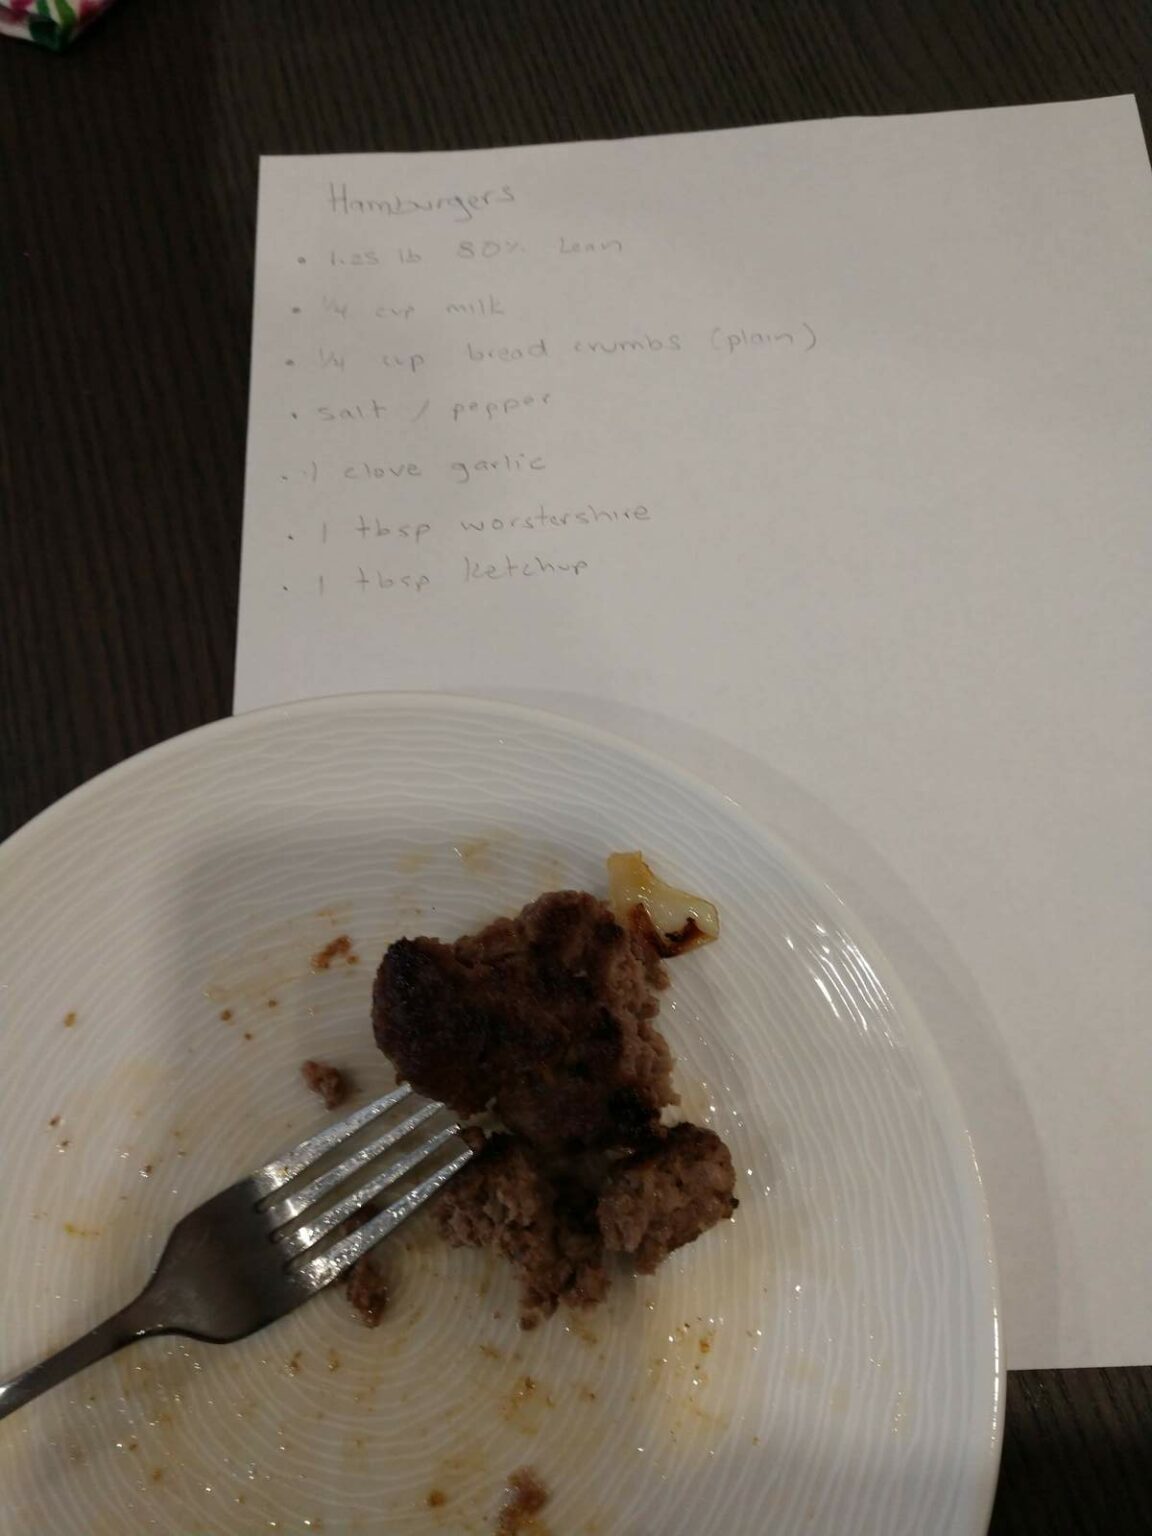 Hamburgers
• 1.25 lb 80% Lean
• 1/4 cup milk
• 1/4 cup bread crumbs (plain)
• salt / pepper
• 1 clove garlic
• 1 tbsp worstershire
• 1 tbsp ketchup